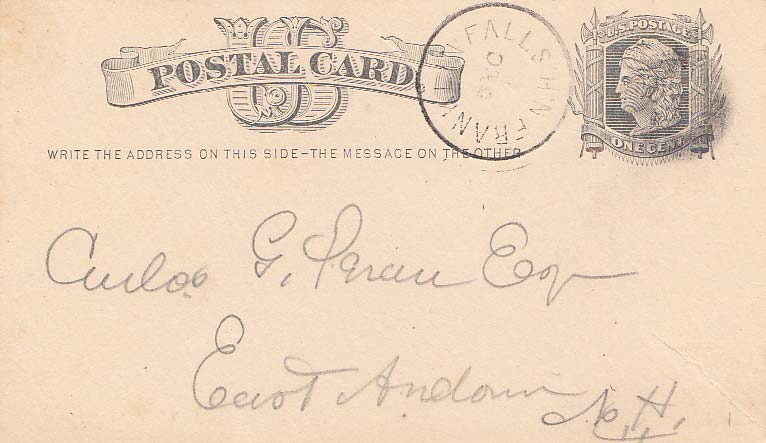 U.S. POSTAGE
US
POSTAL CARD
FRANKLIN FALLS N.H.
DEC
ONE CENT
WRITE THE ADDRESS ON THIS SIDE–THE MESSAGE ON THE OTHER
G. Esq
East Andover N.H.